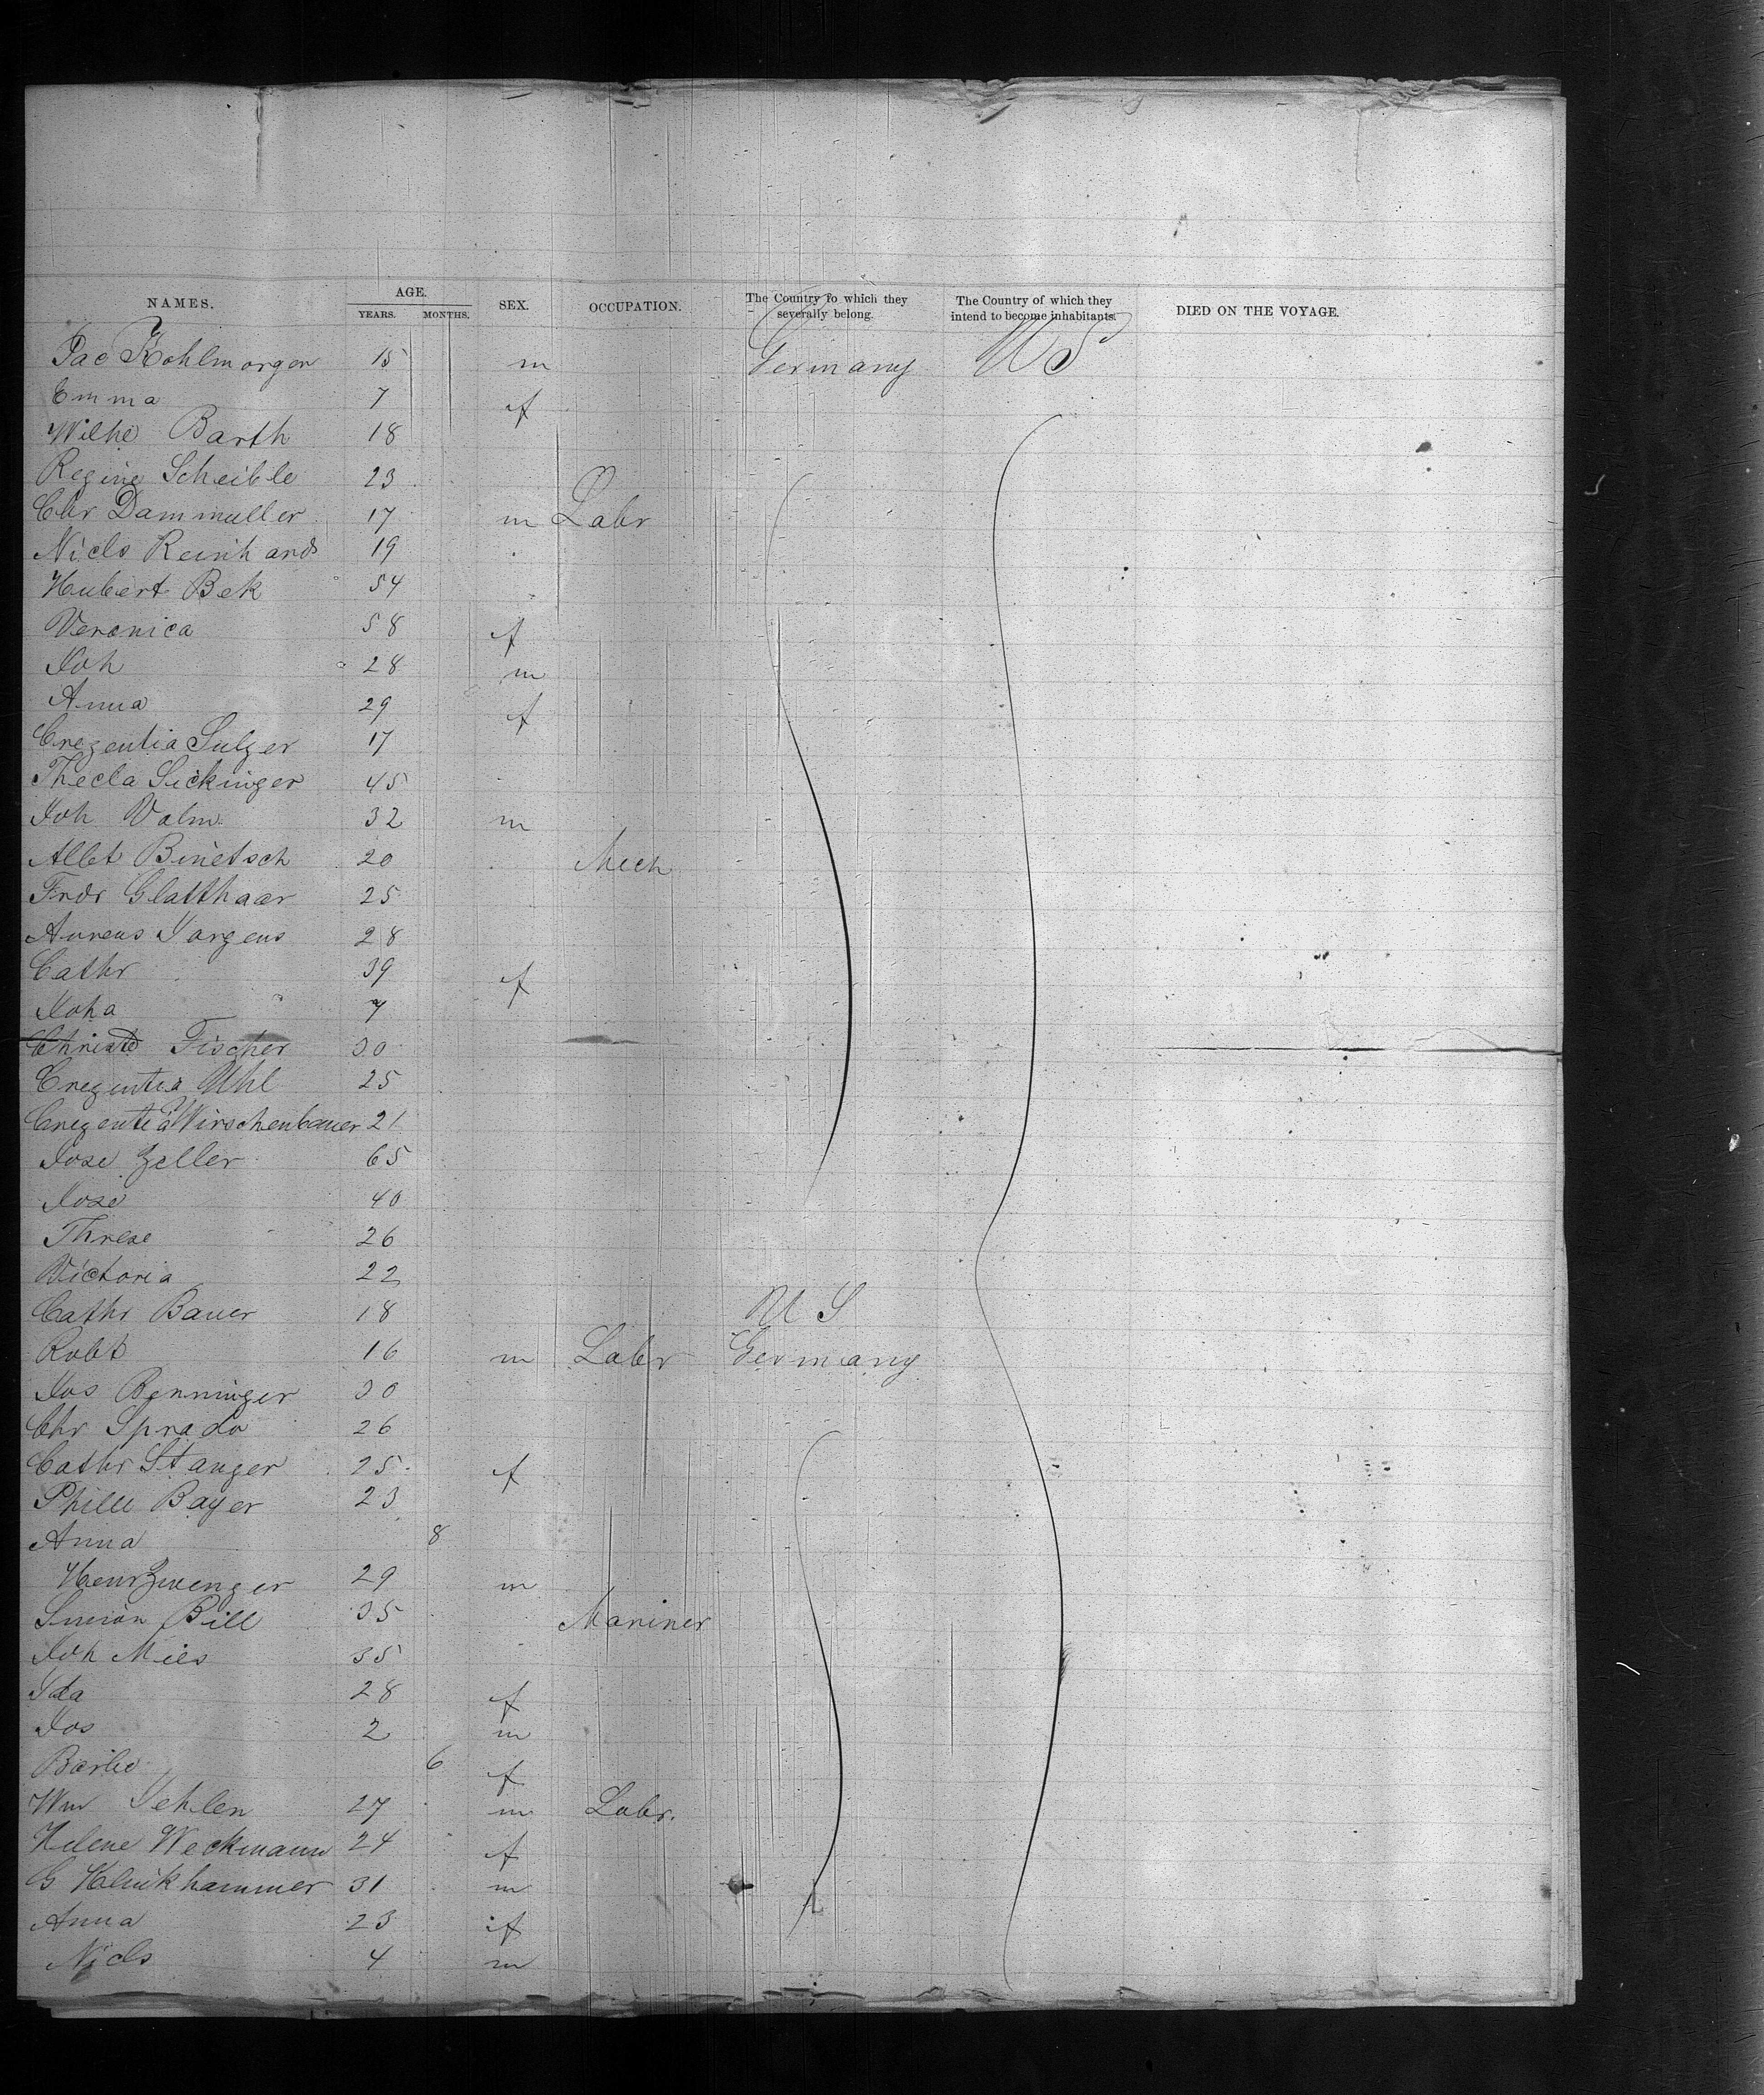 NAMES. AGE. YEARS. MONTHS. SEX. OCCUPATION. The Country to which they severally belong. The Country of which they intend to become inhabitants. DIED ON THE VOYAGE.
Jac Kohlmorgen 15 m Germany US
Emma 7 f
Wilhe Barth 18
Regine Scheible 23
Chr Dammuller 17 m Labr
Nicls Reinhards 19
Hubert Bek 54
Veronica 58 f
Joh 28 m
Anna 29 f
Cregentia Sulger 17
Thecla Sickinger 45
Joh Valm 32 m
Albt Binetsch 20 Mech
Fredr Glatthaar 25
Jargens 28
Cathr 39 f
Joha 7
Fischer 30
Cregentia Uhl 25
Cregentia Wirschenbauer 21
Jose Zeller 65
Jose 40
Threse 26
Victoria 22
Cathr Bauer 18 US
Robt 16 m Labr Germany
Jos Benninger 30
Chr Sprado 26
Cathr Stanger 25 f
Bayer 23
Anna 8
Henr Zwenger 29 m
Simon Bill 35 Mariner
Joh Mies 35
Ida 28 f
Jos 2 m
Barbe 6 f
Wm Jehlen 27 m Labr.
Helene Weckmann 24 f
G Klinkhammer 31 m
Anna 23 f
Nicls 4 m